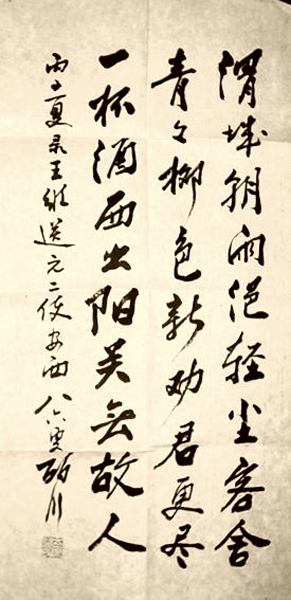 渭城朝雨浥轻尘客舍
青々柳色新劝君更尽
一杯酒西出阳关无故人
丙子夏录王维送元二使安西八六叟